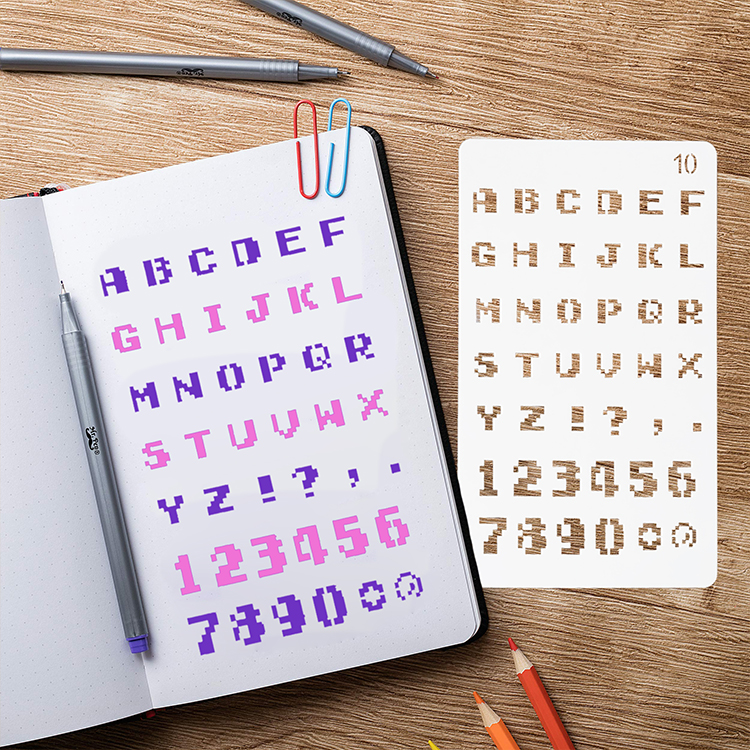 A B C D E F
G H I J K L
M N O P Q R
S T U V W X
Y Z ! ? , .
1 2 3 4 5 6
7 8 9 0
10
A B C D E F
G H I J K L
M N O P Q R
S T U V W X
Y Z ! ? , .
1 2 3 4 5 6
7 8 9 0